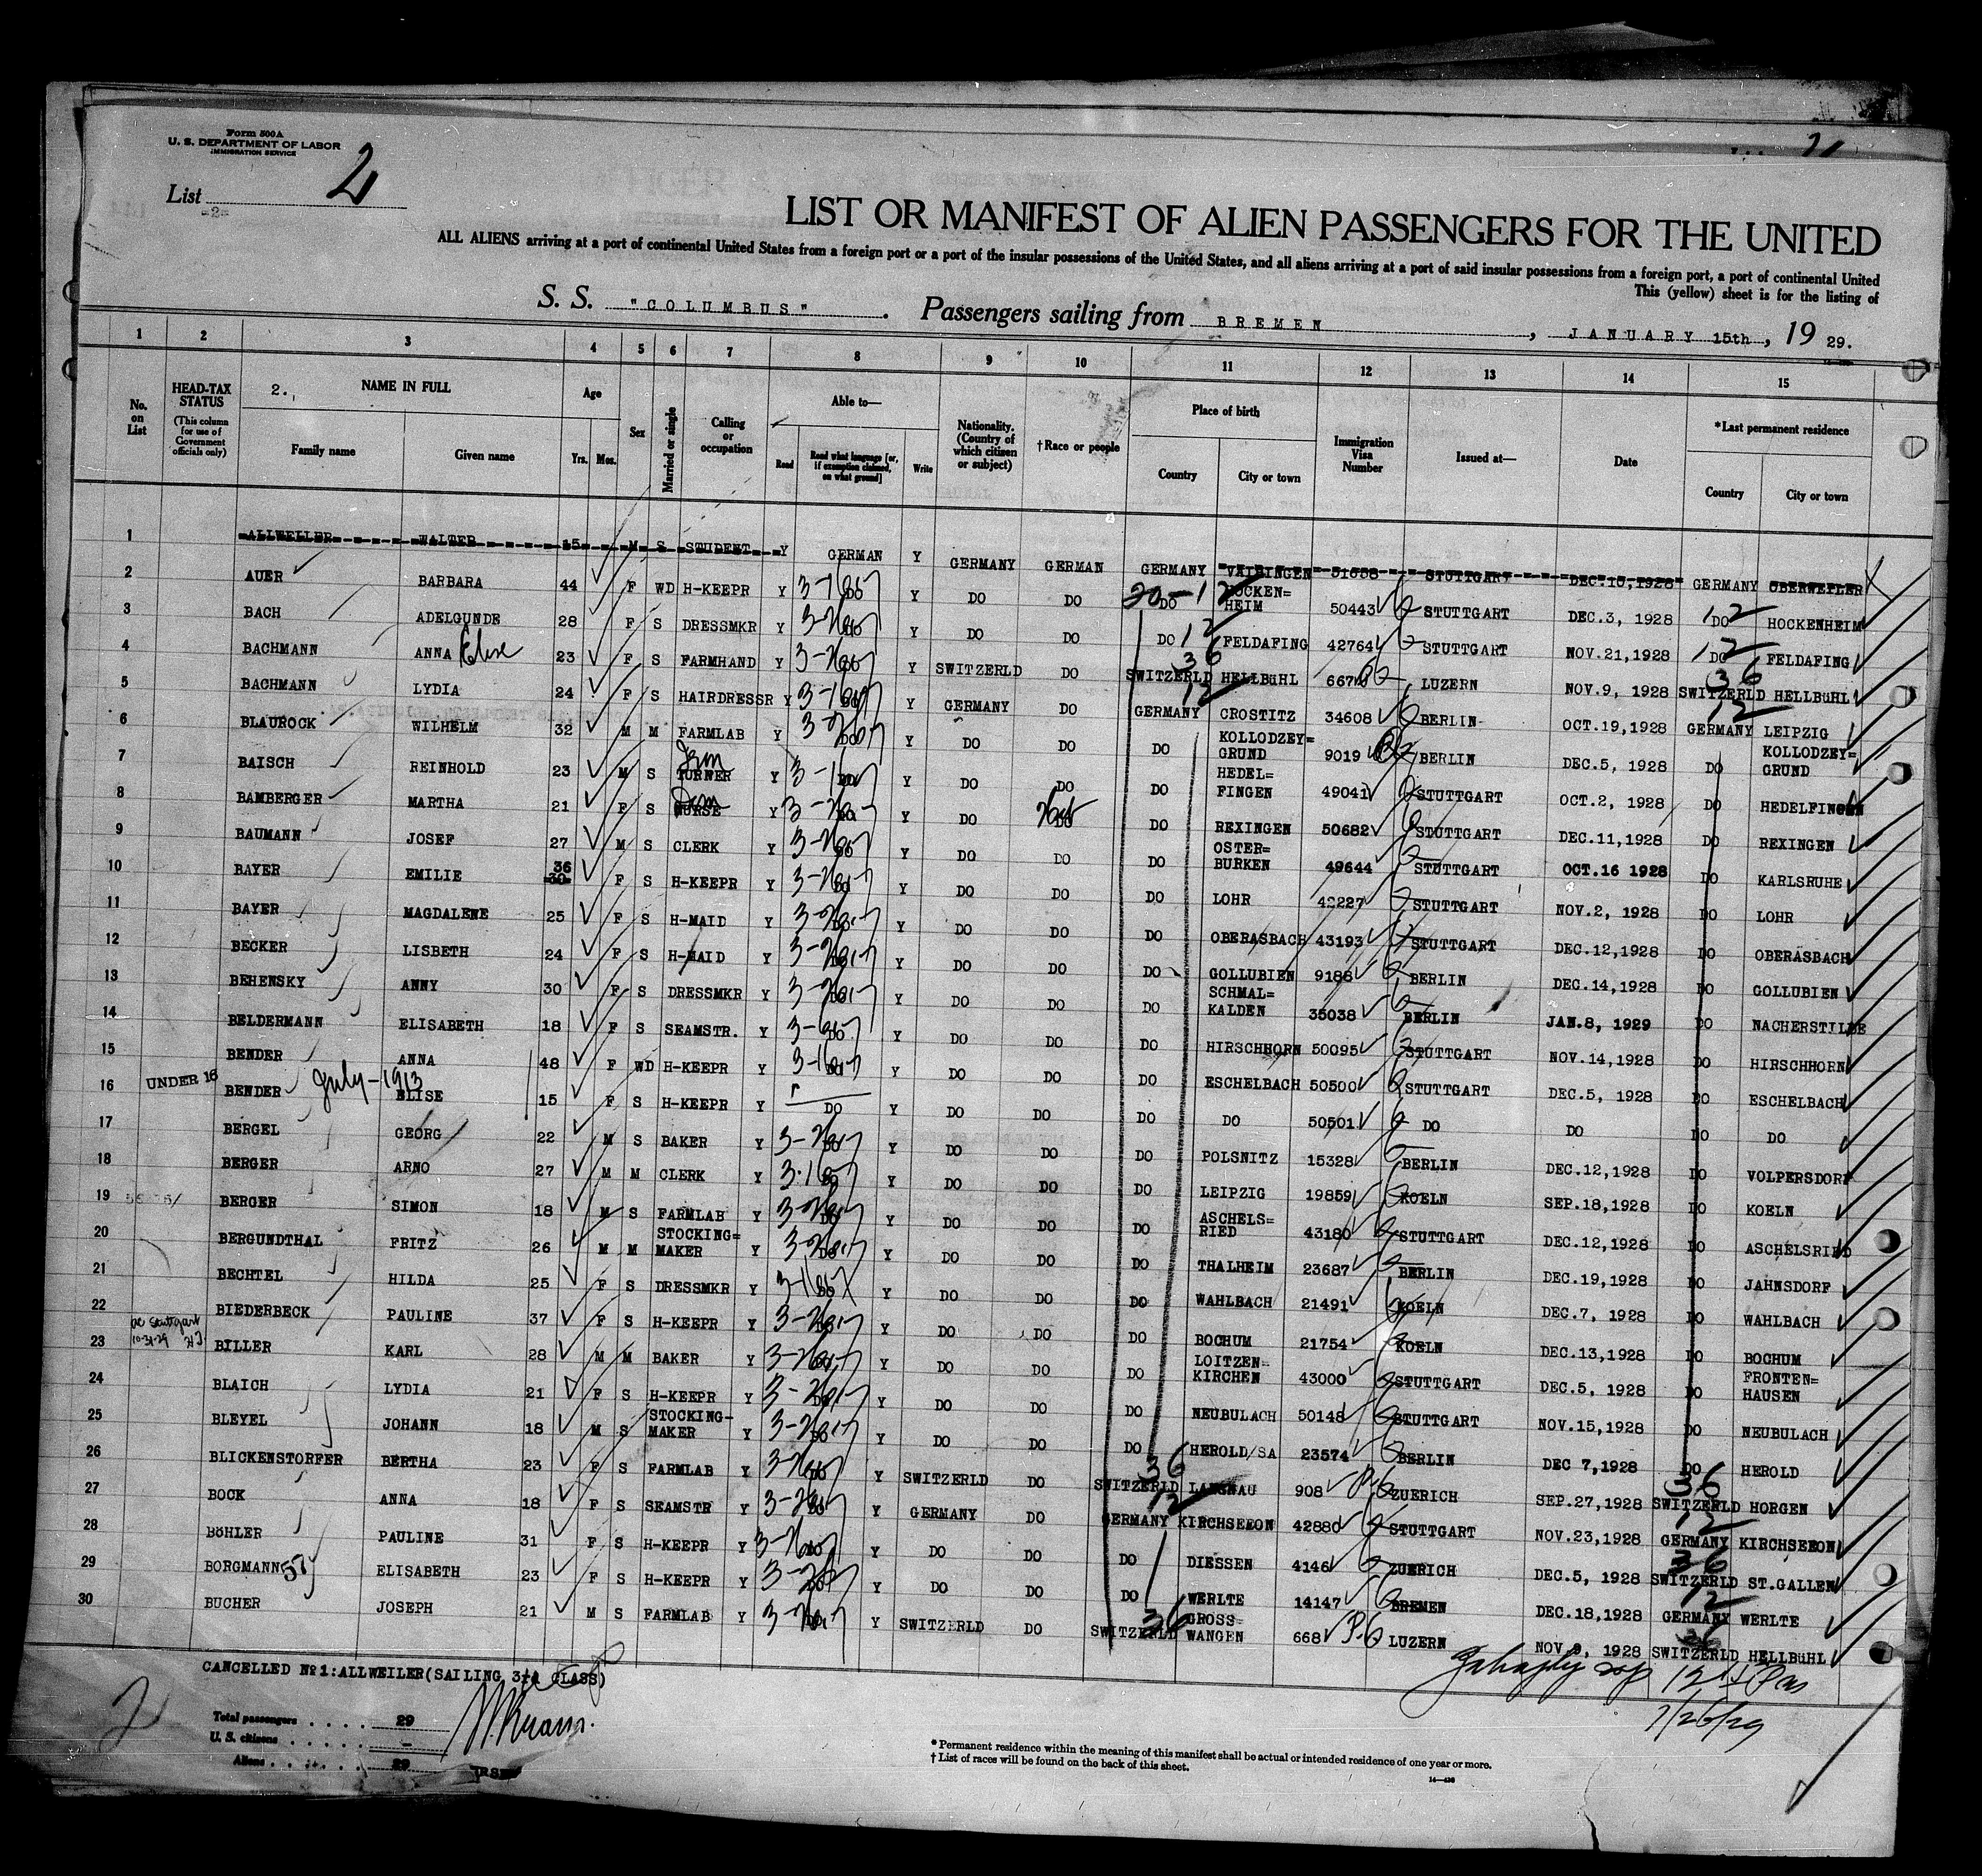 Form 500A
U. S. DEPARTMENT OF LABOR
IMMIGRATION SERVICE
List 2
=2=
LIST OR MANIFEST OF ALIEN PASSENGERS FOR THE UNITED
ALL ALIENS arriving at a port of continental United States from a foreign port or a port of the insular possessions of the United States, and all aliens arriving at a port of said insular possessions from a foreign port, a port of continental United
This (yellow) sheet is for the listing of
S. S. "COLUMBUS" . Passengers sailing from BREMEN , JANUARY 15th , 19 29.
1 2 3 4 5 6 7 8 9 10 11 12 13 14 15
No. on List HEAD-TAX STATUS (This column for use of Government officials only) 2. NAME IN FULL Family name Given name Age Yrs. Mos. Sex Married or single Calling or occupation Able to— Read Read what language [or, if exemption claimed, on what ground] Write Nationality. (Country of which citizen or subject) †Race or people Place of birth Country City or town Immigration Visa Number Issued at— Date *Last permanent residence Country City or town
1 ALLWEILER WALTER 15 M S STUDENT Y GERMAN Y GERMANY GERMAN GERMANY VAIHINGEN STUTTGART DEC.10,1928 GERMANY OBERWEILER
2 AUER BARBARA 44 F WD H-KEEPR Y DO Y DO DO DO HOCKEN=HEIM 50443 STUTTGART DEC.3, 1928 DO HOCKENHEIM
3 BACH ADELGUNDE 28 F S DRESSMKR Y DO Y DO DO DO FELDAFING 42764 STUTTGART NOV.21,1928 DO FELDAFING
4 BACHMANN ANNA Elise 23 F S FARMHAND Y DO Y SWITZERLD DO SWITZERLD HELLBüHL 667 LUZERN NOV.9, 1928 SWITZERLD HELLBüHL
5 BACHMANN LYDIA 24 F S HAIRDRESSR Y DO Y GERMANY DO GERMANY CROSTITZ 34608 BERLIN OCT.19,1928 GERMANY LEIPZIG
6 BLAUROCK WILHELM 32 M M FARMLAB Y DO Y DO DO DO KOLLODZEY=GRUND 9019 BERLIN DEC.5, 1928 DO KOLLODZEY=GRUND
7 BAISCH REINHOLD 23 M S TURNER Y DO Y DO DO DO HEDEL=FINGEN 49041 STUTTGART OCT.2, 1928 DO HEDELFINGEN
8 BAMBERGER MARTHA 21 F S NURSE Y DO Y DO DO DO REXINGEN 50682 STUTTGART DEC.11,1928 DO REXINGEN
9 BAUMANN JOSEF 27 M S CLERK Y DO Y DO DO DO OSTER=BURKEN 49644 STUTTGART OCT.16 1928 DO KARLSRUHE
10 BAYER EMILIE 36 30 F S H-KEEPR Y DO Y DO DO DO LOHR 42227 STUTTGART NOV.2, 1928 DO LOHR
11 BAYER MAGDALENE 25 F S H-MAID Y DO Y DO DO DO OBERASBACH 43193 STUTTGART DEC.12,1928 DO OBERASBACH
12 BECKER LISBETH 24 F S H-MAID Y DO Y DO DO DO GOLLUBIEN 9188 BERLIN DEC.14,1928 DO GOLLUBIEN
13 BEHENSKY ANNY 30 F S DRESSMKR Y DO Y DO DO DO SCHMAL=KALDEN 35038 BERLIN JAN.8, 1929 DO NACHERSTILDE
14 BELDERMANN ELISABETH 18 F S SEAMSTR. Y DO Y DO DO DO HIRSCHHORN 50095 STUTTGART NOV.14,1928 DO HIRSCHHORN
15 BENDER ANNA 48 F WD H-KEEPR Y DO Y DO DO DO ESCHELBACH 50500 STUTTGART DEC.5, 1928 DO ESCHELBACH
16 UNDER 16 BENDER July-1913 ELISE 15 F S H-KEEPR Y DO Y DO DO DO DO 50501 DO DO DO DO
17 BERGEL GEORG 22 M S BAKER Y DO Y DO DO DO POLSNITZ 15328 BERLIN DEC.12,1928 DO VOLPERSDORF
18 BERGER ARNO 27 M M CLERK Y DO Y DO DO DO LEIPZIG 19859 KOELN SEP.18,1928 DO KOELN
19 BERGER SIMON 18 M S FARMLAB Y DO Y DO DO DO ASCHELS=RIED 43180 STUTTGART DEC.12,1928 DO ASCHELSRIED
20 BERGUNDTHAL FRITZ 26 M M STOCKING=MAKER Y DO Y DO DO DO THALHEIM 23687 BERLIN DEC.19,1928 DO JAHNSDORF
21 BECHTEL HILDA 25 F S DRESSMKR Y DO Y DO DO DO WAHLBACH 21491 KOELN DEC.7, 1928 DO WAHLBACH
22 BIEDERBECK PAULINE 37 F S H-KEEPR Y DO Y DO DO DO BOCHUM 21754 KOELN DEC.13,1928 DO BOCHUM
23 BILLER KARL 28 M M BAKER Y DO Y DO DO DO LOITZEN=KIRCHEN 43000 STUTTGART DEC.5, 1928 DO FRONTEN=HAUSEN
24 BLAICH LYDIA 21 F S H-KEEPR Y DO Y DO DO DO NEUBULACH 50148 STUTTGART NOV.15,1928 DO NEUBULACH
25 BLEYEL JOHANN 18 M S STOCKING-MAKER Y DO Y DO DO DO HEROLD/SA 23574 BERLIN DEC 7,1928 DO HEROLD
26 BLICKENSTORFER BERTHA 23 F S FARMLAB Y DO Y SWITZERLD DO SWITZERLD LANGNAU 908 ZUERICH SEP.27,1928 SWITZERLD HORGEN
27 BOCK ANNA 18 F S SEAMSTR Y DO Y GERMANY DO GERMANY KIRCHSEEON 42880 STUTTGART NOV.23,1928 GERMANY KIRCHSEEON
28 BöHLER PAULINE 31 F S H-KEEPR Y DO Y DO DO DO DIESSEN 4146 ZUERICH DEC.5, 1928 SWITZERLD ST.GALLEN
29 BORGMANN ELISABETH 23 F S H-KEEPR Y DO Y DO DO DO WERLTE 14147 BREMEN DEC.18,1928 GERMANY WERLTE
30 BUCHER JOSEPH 21 M S FARMLAB Y DO Y SWITZERLD DO SWITZERLD GROSS=WANGEN 668 LUZERN NOV 9, 1928 SWITZERLD HELLBüHL
CANCELLED No 1:ALLWEILER(SAILING 3rd CLASS)
2
Total passengers . . . . 29
U. S. citizens . . . . . -
Aliens . . . . . . 29
1/26/29
* Permanent residence within the meaning of this manifest shall be actual or intended residence of one year or more.
† List of races will be found on the back of this sheet.